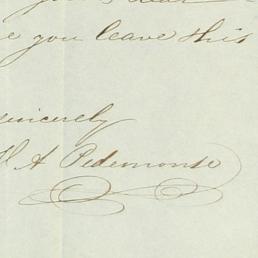 e you leave this
sincerely
A Pedemonte